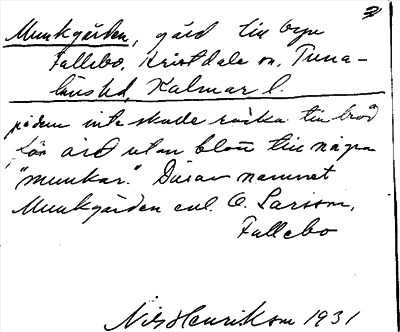 3)
Munkgården, gård till byn
Fallebo, Kristdala sn, Tuna-
läns hd, Kalmar l.
jorden inte skulle räcka till bröd
för ård utan blott till några
"munkar". Därav namnet
Munkgården enl. O. Larsson,
Fallebo
Nils Henrikson 1931